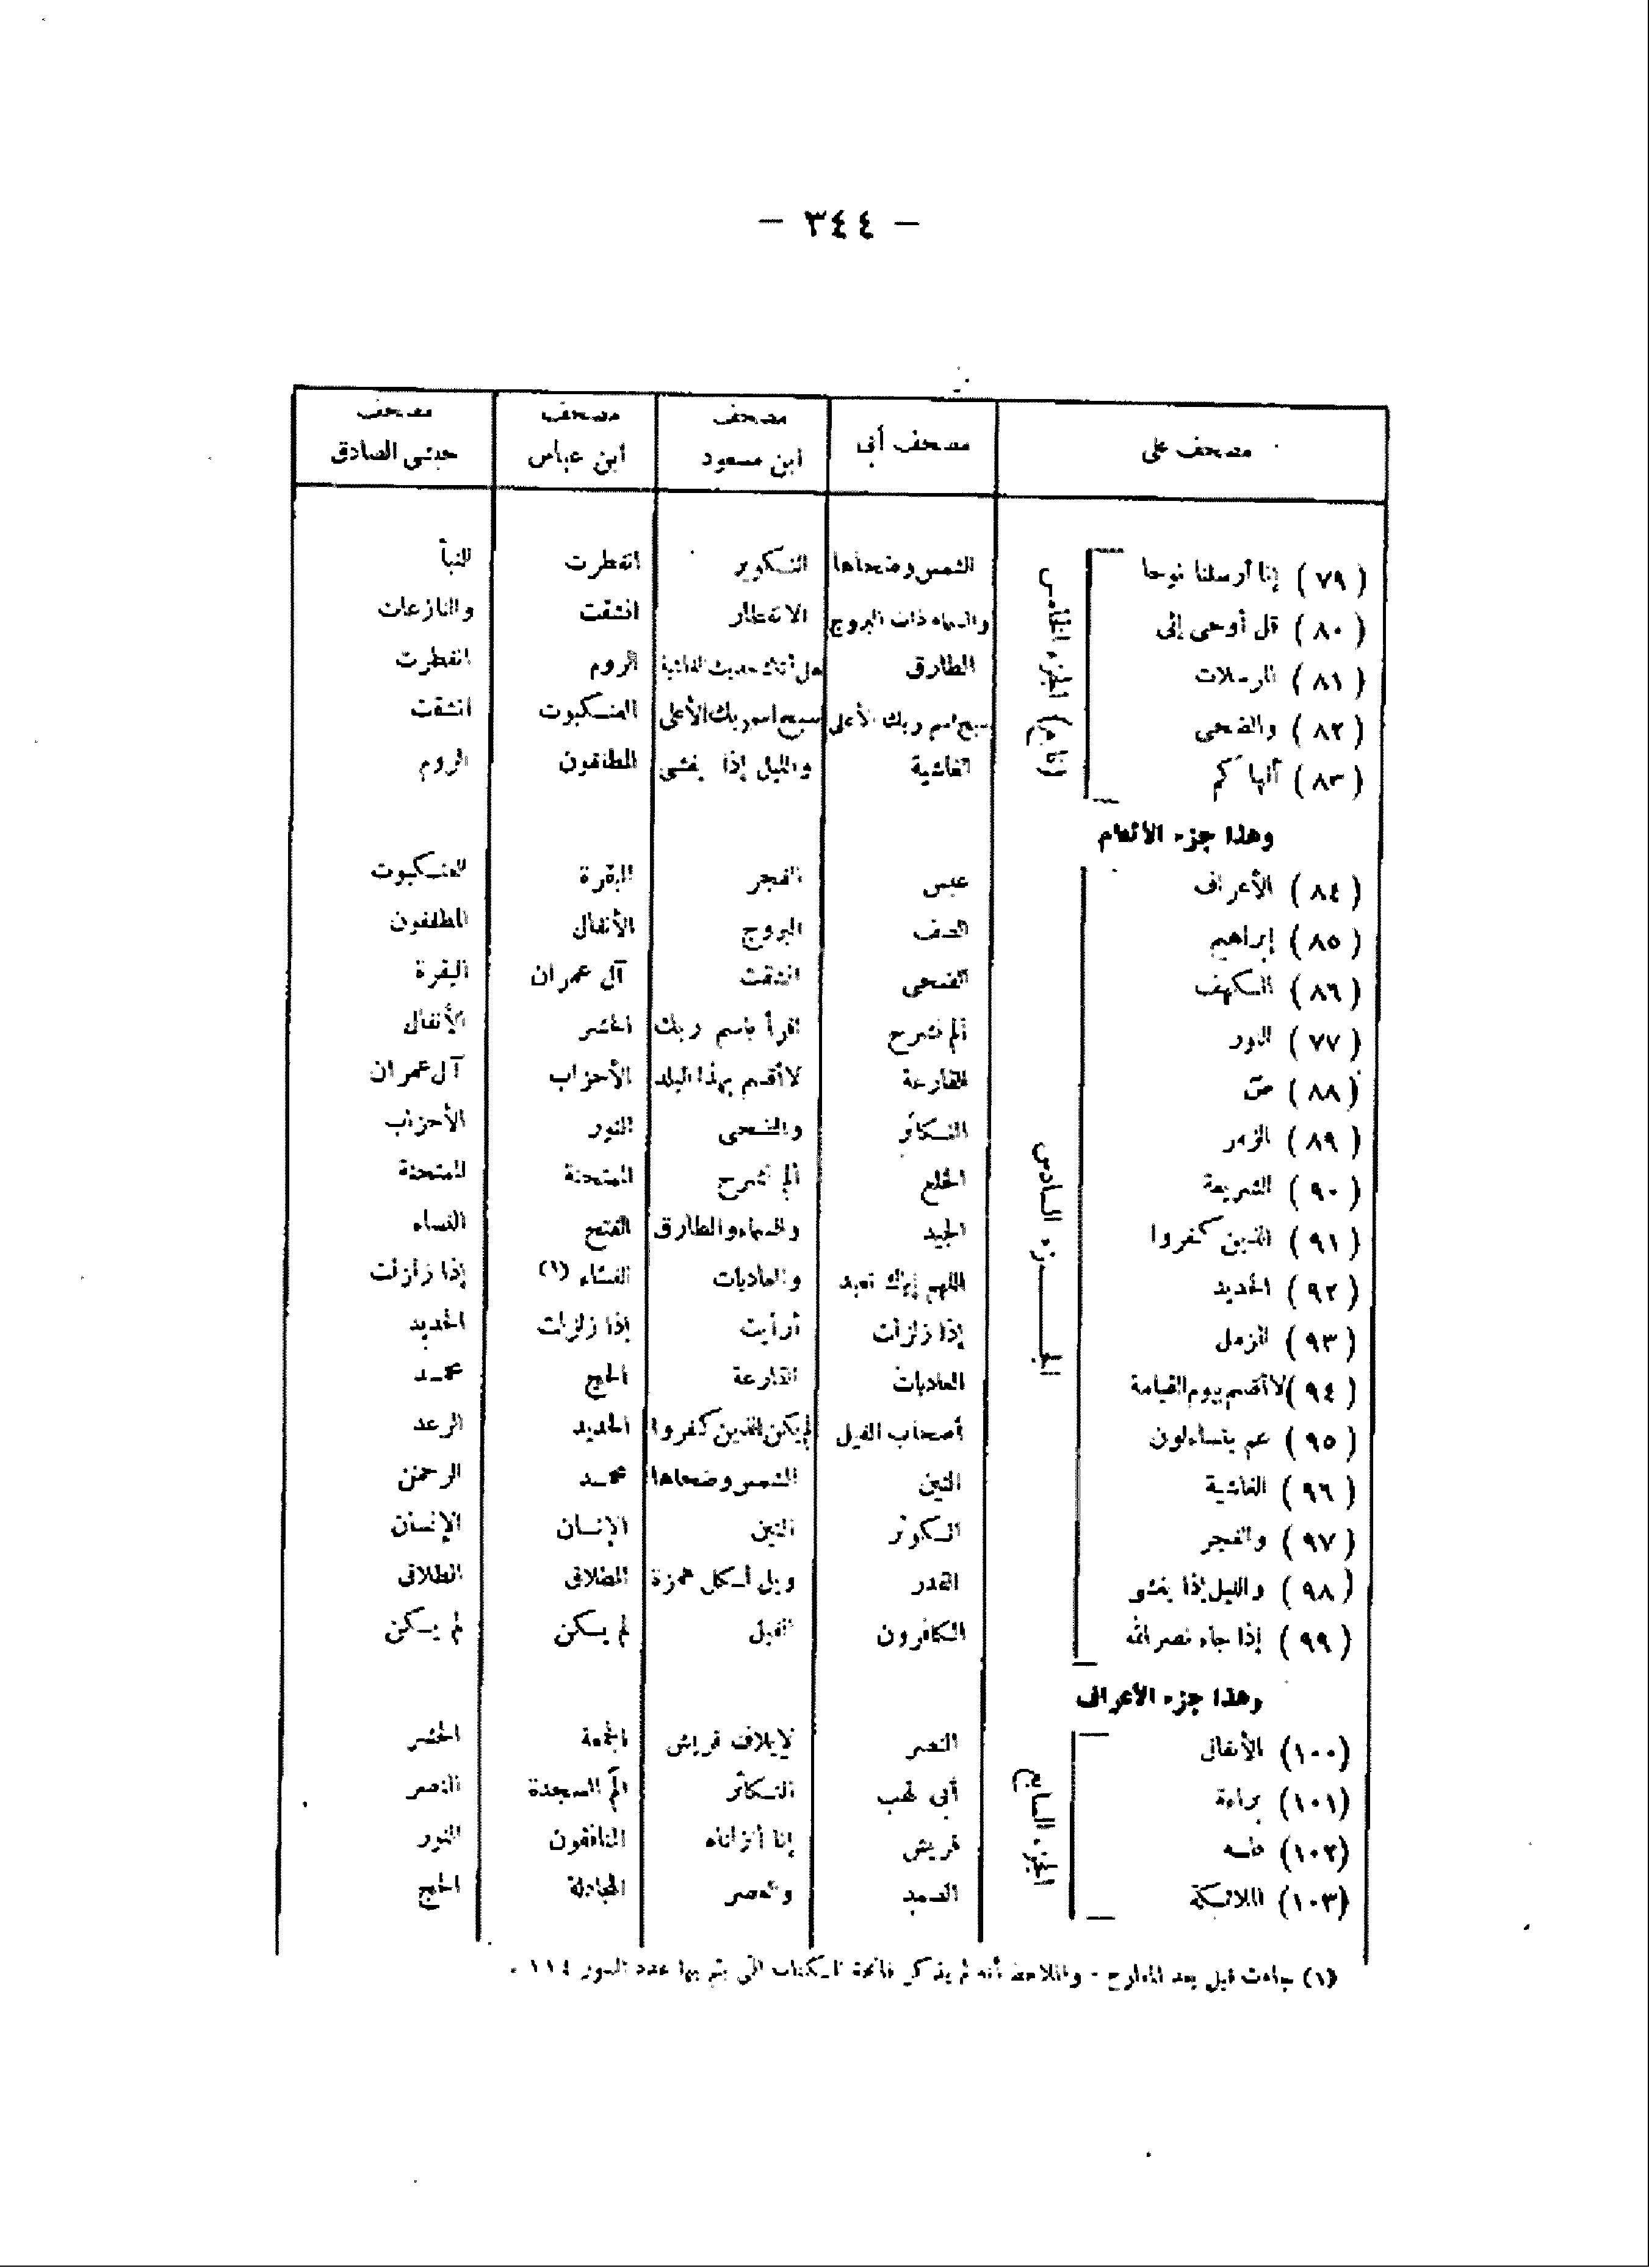 - ٣٤٤ -
مصحف على مصحف أبي مصحف ابن مسعود مصحف ابن عباس مصحف الصادق
(تابع) الجزء الخامس
(٧٩) إنا أرسلنا نوحا الشمس وضحاها التكوير انفطرت النبأ
(٨٠) قل أوحى إلى والسماء ذات البروج الانفطار انشقت والنازعات
(٨١) المرسلات الطارق هل أتاك حديث الغاشية الروم انفطرت
(٨٢) والضحى سبح اسم ربك الأعلى سبح اسم ربك الأعلى العنكبوت انشقت
(٨٣) ألهاكم الغاشية والليل إذا يغشى المطففون الروم
وهذا جزء الأنعام
الجزء السادس
(٨٤) الأعراف عبس الفجر البقرة العنكبوت
(٨٥) إبراهيم الصف البروج الأنفال المطففون
(٨٦) الكهف الضحى انشقت آل عمران البقرة
(٧٧) النور ألم نشرح اقرأ باسم ربك الحشر الأنفال
(٨٨) ص القارعة لا أقسم بهذا البلد الأحزاب آل عمران
(٨٩) الزمر التكاثر والضحى النور الأحزاب
(٩٠) الشريعة الخلع ألم نشرح الممتحنة الممتحنة
(٩١) الذين كفروا الجيد والسماء والطارق الفتح النساء
(٩٢) الحديد اللهم إياك نعبد والعاديات النساء (١) إذا زلزلت
(٩٣) المزمل إذا زلزلت أرأيت إذا زلزلت الحديد
(٩٤) لا أقسم بيوم القيامة العاديات القارعة الحج محمد
(٩٥) عم يتساءلون أصحاب الفيل لم يكن الذين كفروا الحديد الرعد
(٩٦) الغاشية التين الشمس وضحاها محمد الرحمن
(٩٧) والفجر الكوثر التين الإنسان الإنسان
(٩٨) والليل إذا يغشى القدر ويل لكل همزة الطلاق الطلاق
(٩٩) إذا جاء نصر الله الكافرون الفيل لم يكن لم يكن
وهذا جزء الأعراف
الجزء السابع
(١٠٠) الأنفال النصر لإيلاف قريش الجمعة الحشر
(١٠١) براءة أبي لهب التكاثر الم السجدة النصر
(١٠٢) طه قريش إنا أنزلناه المنافقون النور
(١٠٣) الملائكة الصمد والعصر المجادلة الحج
(١) جاءت قبل بعد المعارج - والملاحظ أنه لم يذكر فاتحة الكتاب التي يتم بها عدد السور ١١٤ .